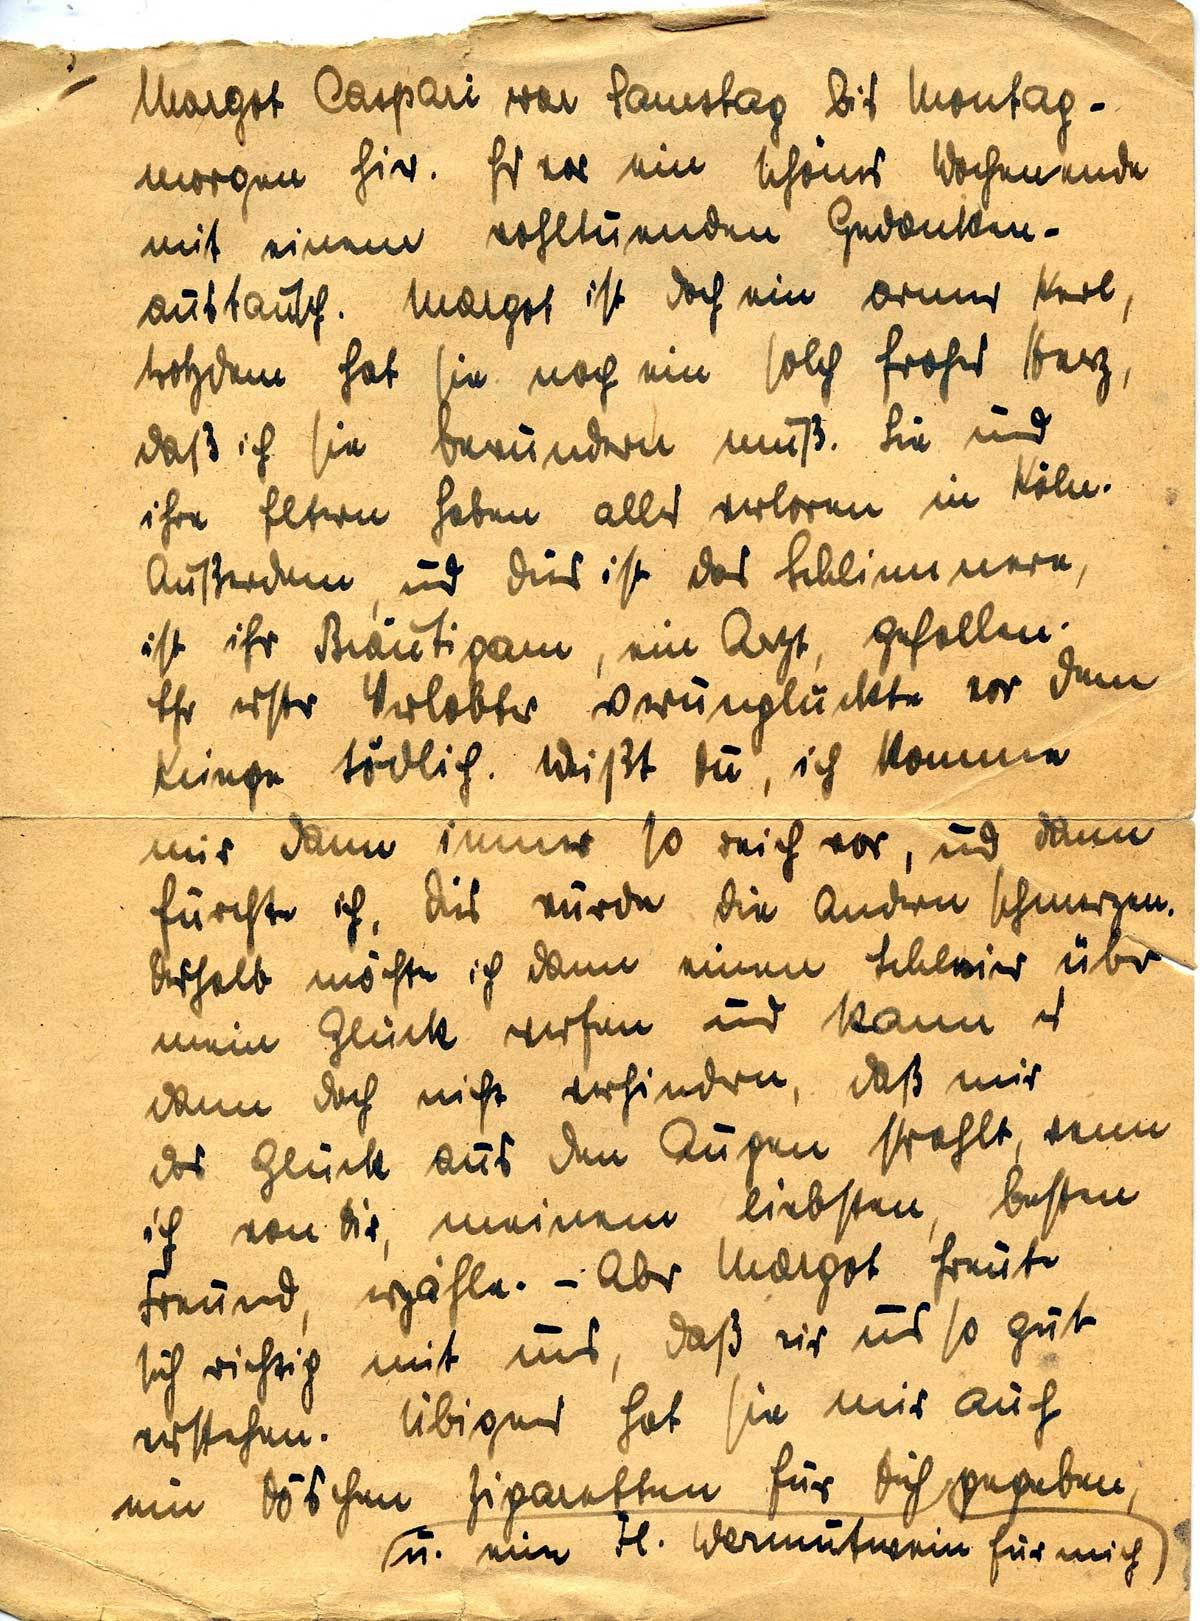 Margot Caspari war Samstag bis Montag-
morgen hier. Es war ein schönes Wochenende
mit einem wohltuenden Gedanken-
austausch. Margot ist doch ein armer Kerl,
trotzdem hat sie noch ein solch frohes Herz,
daß ich sie bewundern muß. Sie und
ihre Eltern haben alles verloren in Köln.
Außerdem, und dies ist das Schlimmere,
ist ihr Bräutigam, ein Arzt, gefallen.
Ihr erster Verlobter verunglückte vor dem
Kriege tödlich. Weißt du, ich komme
mir dann immer so reich vor, und dann
fürchte ich, dies würde die Andern schmerzen.
Deshalb möchte ich dann einen Schleier über
mein Glück werfen und kann es
dann doch nicht verhindern, daß mir
das Glück aus den Augen strahlt, wenn
ich von Dir, meinem liebsten, besten
Freund, erzähle. – Aber Margot freute
sich richtig mit uns, daß wir uns so gut
verstehen. Übigens hat sie mir auch
ein Döschen Zigaretten für Dich gegeben,
(u. eine Fl. Wermutwein für mich)